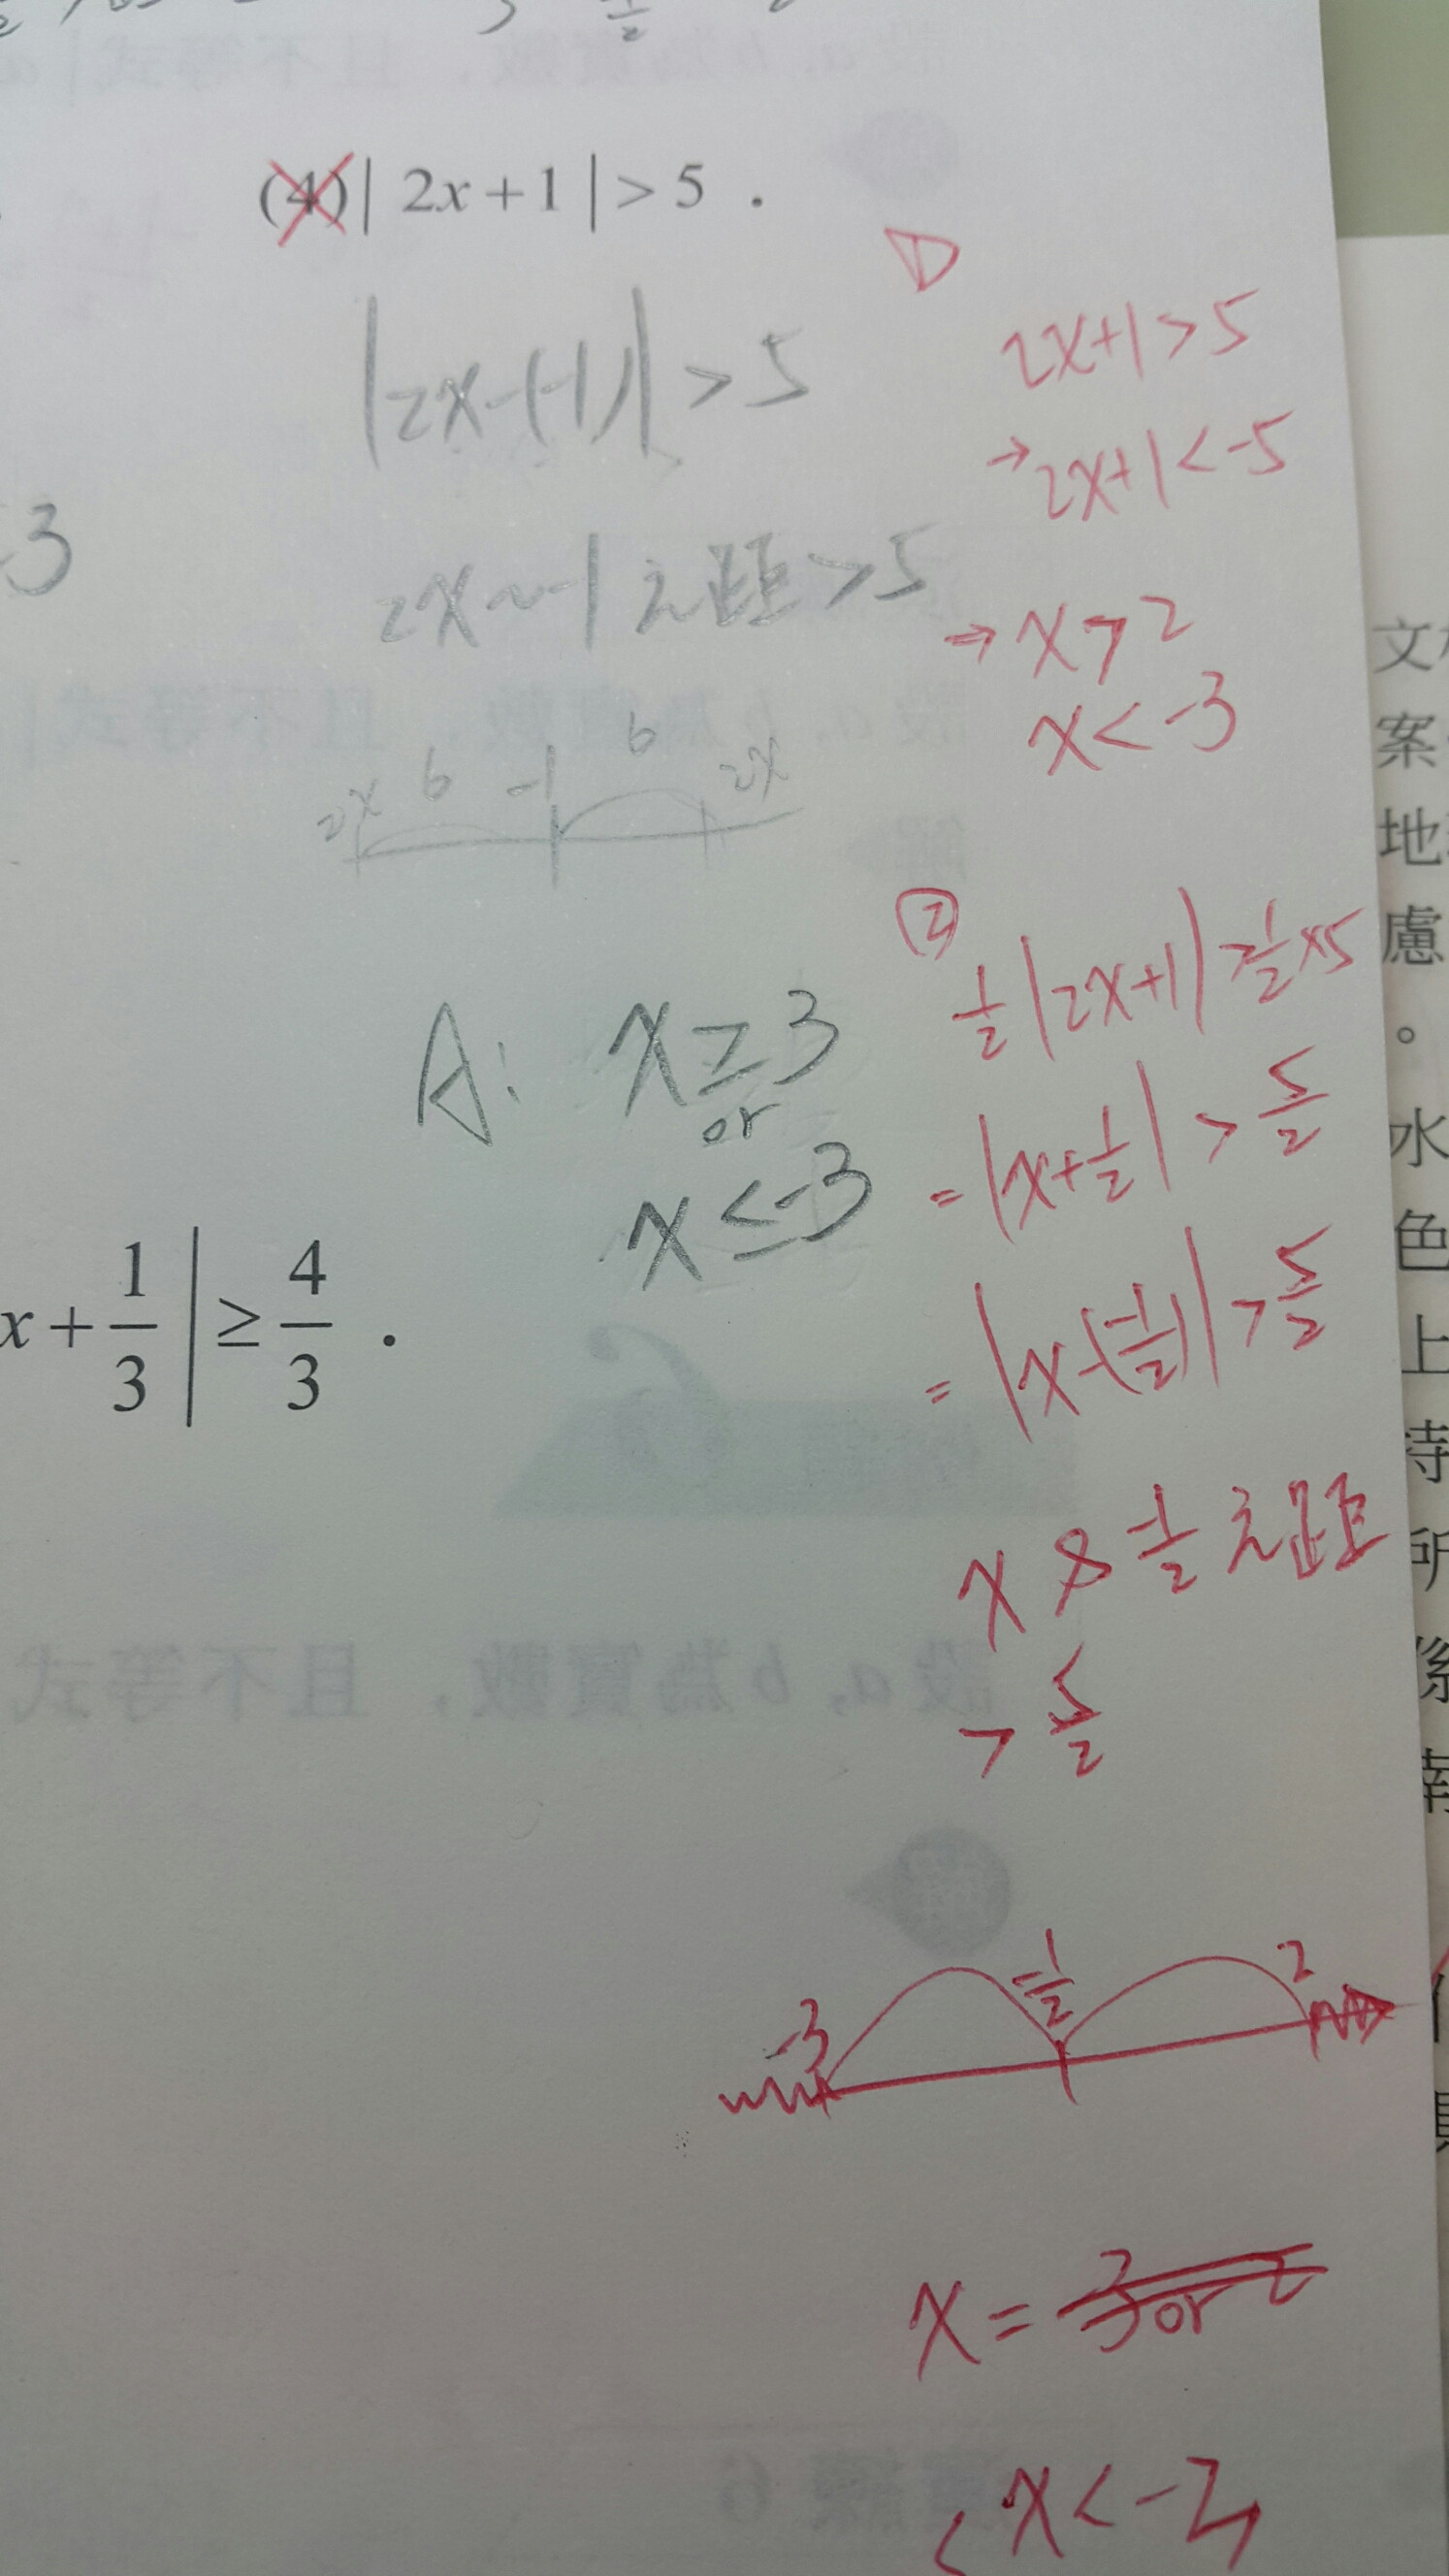 (4)| 2x+1 |>5 .
|2x-(-1)|>5
2x~-1之距>5
2x 6 -1 6 2x
A: x≥3
or
x≤-3
x+1/3 | ≥ 4/3 .
①
2x+1>5
→2x+1<-5
⇒x>2
x<-3
②
1/2|2x+1|>1/2×5
=|x+1/2|>5/2
=|x-(-1/2)|>5/2
x&-1/2之距
>5/2
-3 -1/2 2
x=-3or2
x<-3
-3
文
案
地
慮
。
水
色
上
持
所
係